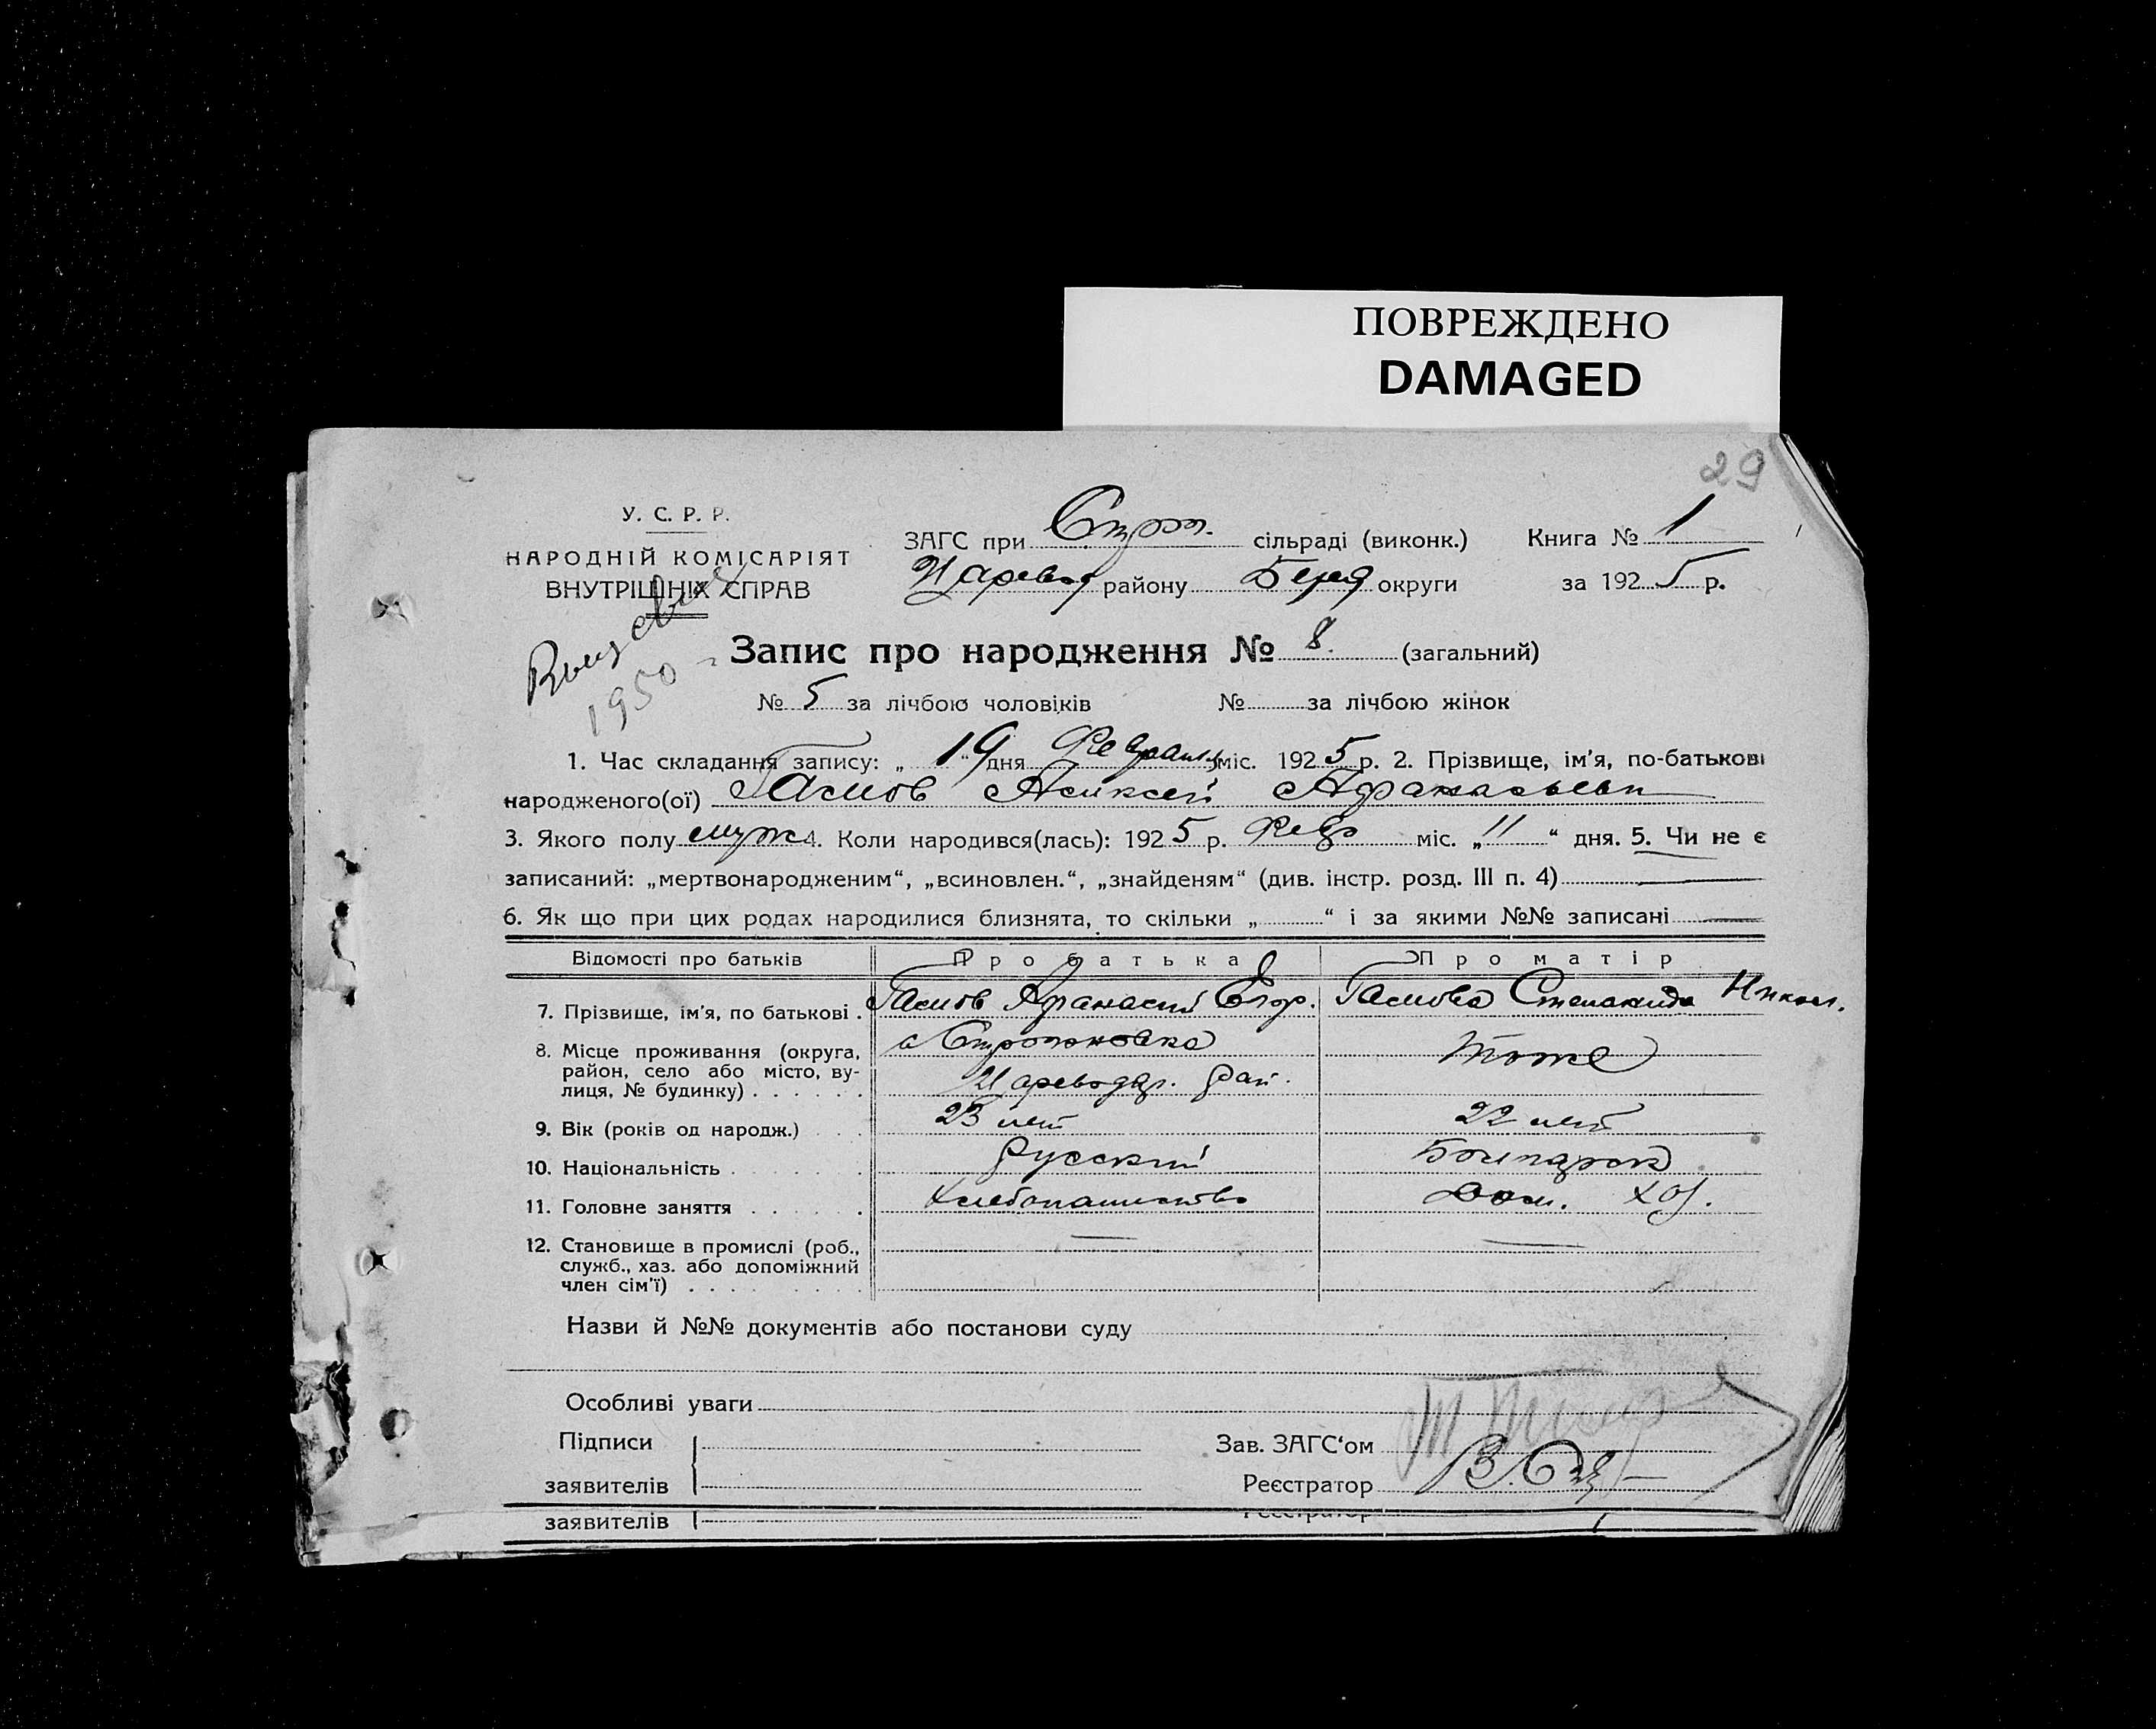 ПОВРЕЖДЕНО
DAMAGED
29
У. С. Р. Р.
НАРОДНІЙ КОМІСАРІЯТ
ВНУТРІШНІХ СПРАВ
ЗАГС при Строг. сільраді (виконк.) Книга № 1
району округи за 1925 р.
1950
Запис про народження № 8. (загальний)
№ 5 за лічбою чоловіків № за лічбою жінок
1. Час складання запису: „19“ дня Февраля міс. 1925 р. 2. Прізвище, ім'я, по-батькові
народженого(ої) Алексей Афанасьевич
3. Якого полу муж 4. Коли народився(лась): 1925 р. Февр міс. „11“ дня. 5. Чи не є
записаний: „мертвонародженим“, „всиновлен.“, „знайденям“ (див. інстр. розд. III п. 4)
6. Як що при цих родах народилися близнята, то скільки „ “ і за якими №№ записані
Відомості про батьків Про батька Про матір
7. Прізвище, ім'я, по батькові . Афанасий Егор. Степанида Никол.
8. Місце проживання (округа, район, село або місто, вулиця, № будинку) с Строгоновка Цареводар. рай. Тоже
9. Вік (років од народж.) 23 лет 22 лет
10. Національність Русский Болгарск
11. Головне заняття Хлебопашество Дом. хоз.
12. Становище в промислі (роб.,
служб., хаз. або допоміжний
член сім'ї)
Назви й №№ документів або постанови суду
Особливі уваги
Підписи
заявителів
Зав. ЗАГС‘ом
Реєстратор
заявителів
Реєстратор